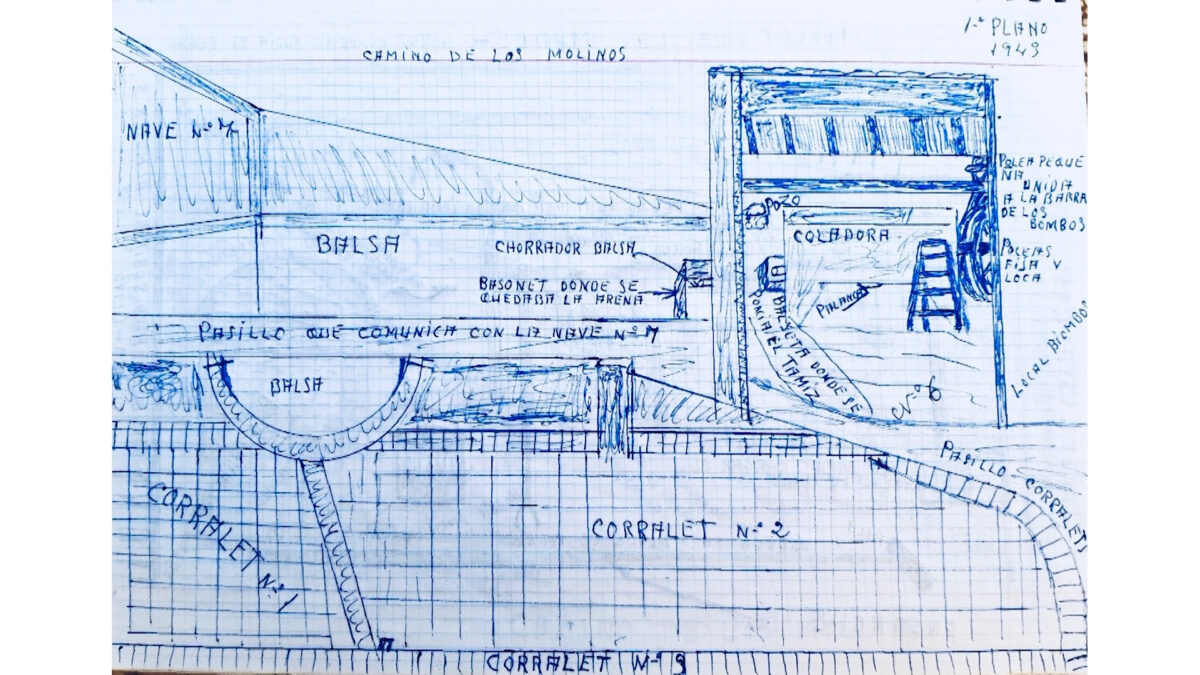 1.º PLANO
1943
CAMINO DE LOS MOLINOS
NAVE Nº 7
BALSA
CHORRADOR BALSA
BASONET DONDE SE
QUEDABA LA ARENA
PASILLO QUE COMUNICA CON LA NAVE Nº 7
BALSA
POZO
COLADORA
PALANCA
BALSETA DONDE SE
PONIA EL TAMIZ
Nº 6
POLEA PEQUE
NA
UNIDA
A LA BARRA
DE LOS
BOMBOS
POLEAS
FIJA Y
LOCA
LOCAL BIOMBO
PASILLO - CORRALETS
CORRALET Nº 1
CORRALET Nº 2
CORRALET Nº 3